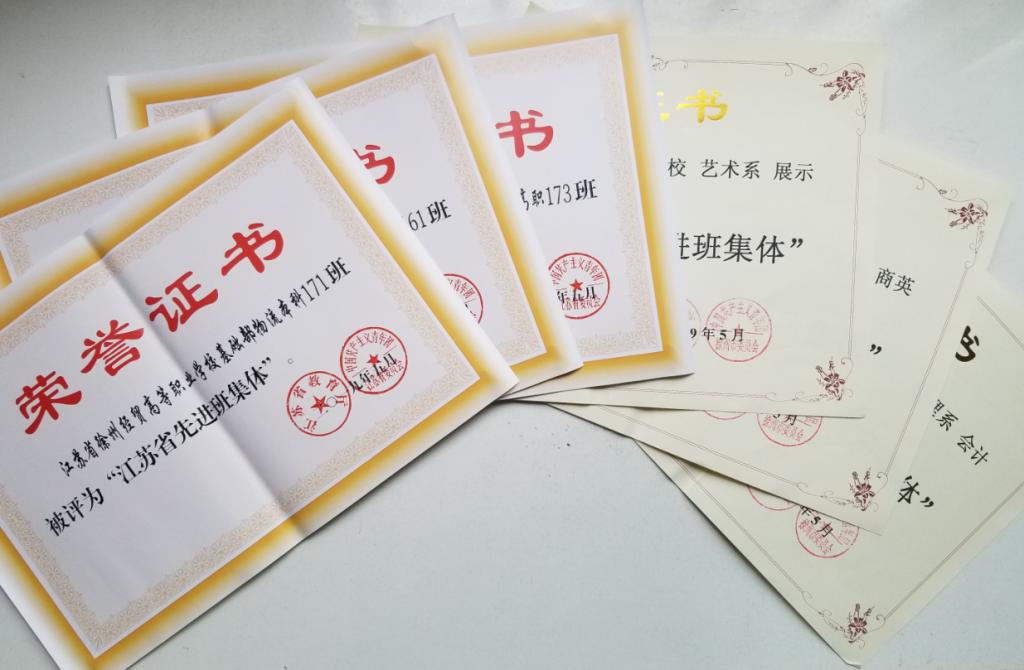 荣誉证书
江苏省徐州经贸高等职业学校基础部物流本科171班
被评为“江苏省先进班集体”。
九年五月
江苏省学
中国共产主义青年团
江苏省委员会
书
61班
书
高职173班
年五月
中国共产主义青年团
证书
校 艺术系 展示
进班集体”
9年5月
中国共产主义青年团
徐州市委员会
商英
”
5月
书
系 会计
体”
年5月